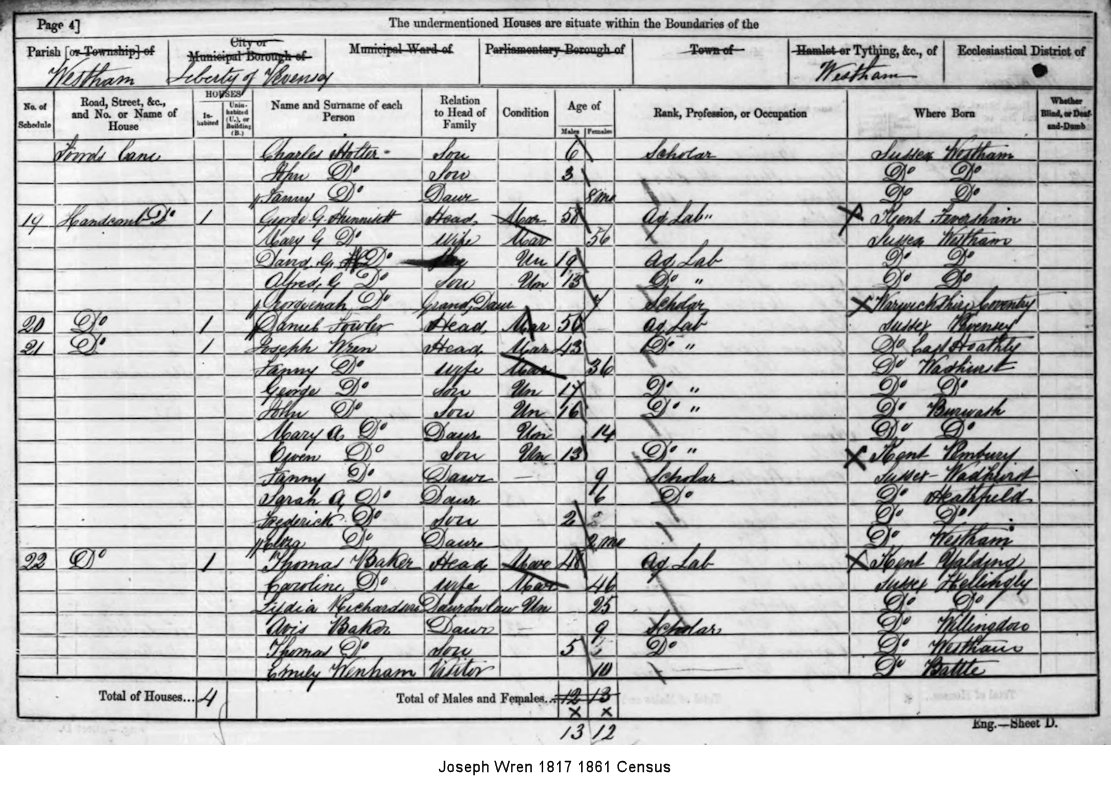 Page 4]
The undermentioned Houses are situate within the Boundaries of the
Parish [or Township] of
City or Municipal Borough of
Municipal Ward of
Parliamentary Borough of
Town of
Hamlet or Tything, &c., of
Ecclesiastical District of
Westham Liberty of Pevensey Westham
No. of Schedule
Road, Street, &c., and No. or Name of House
HOUSES
In-habited
Unin-habited (U.), or Building (B.)
Name and Surname of each Person
Relation to Head of Family
Condition
Age of
Males Females
Rank, Profession, or Occupation
Where Born
Whether Blind, or Deaf-and-Dumb
Lane Charles Son 6 Scholar Sussex Westham
John Do Son 3 Do Do
Fanny Do Daur 8 mo Do Do
19 Do 1 George G. Head Mar 58 Ag Lab Kent Feversham
Mary G Do Wife Mar 56 Sussex Westham
David G Do Un 19 Ag Lab Do Do
Alfred G Do Son Un 15 Do " Do Do
Do Grand Daur 7 Scholar Warwickshire Coventry
20 Do 1 Daniel Fowler Head Mar 50 Ag Lab Sussex Pevensey
21 Do 1 Joseph Wren Head Mar 43 Do " Do East Hoathly
Fanny Do Wife Mar 36 Do Wadhurst
George Do Son Un 17 Do " Do Do
John Do Son Un 16 Do " Do Burwash
Mary A Do Daur Un 14 Do Do
Owen Do Son Un 13 Do " Kent Pembury
Fanny Do Daur 9 Scholar Sussex Wadhurst
Sarah A Do Daur 6 Do Do Heathfield
Frederick Do Son 2 Do Do
Eliza Do Daur 2 mo Do Westham
22 Do 1 Thomas Baker Head Mar 48 Ag Lab Kent Yalding
Caroline Do Wife Mar 46 Sussex Hellingly
Lydia Richardson Daur in law Un 25 Do Do
Avis Baker Daur 9 Scholar Do Willingdon
Thomas Do Son 5 Do Do Westham
Emily Wenham Visitor 10 Do Battle
Total of Houses... 4
Total of Males and Females... 12 13
x x
13 12
Eng.—Sheet D.
Joseph Wren 1817 1861 Census